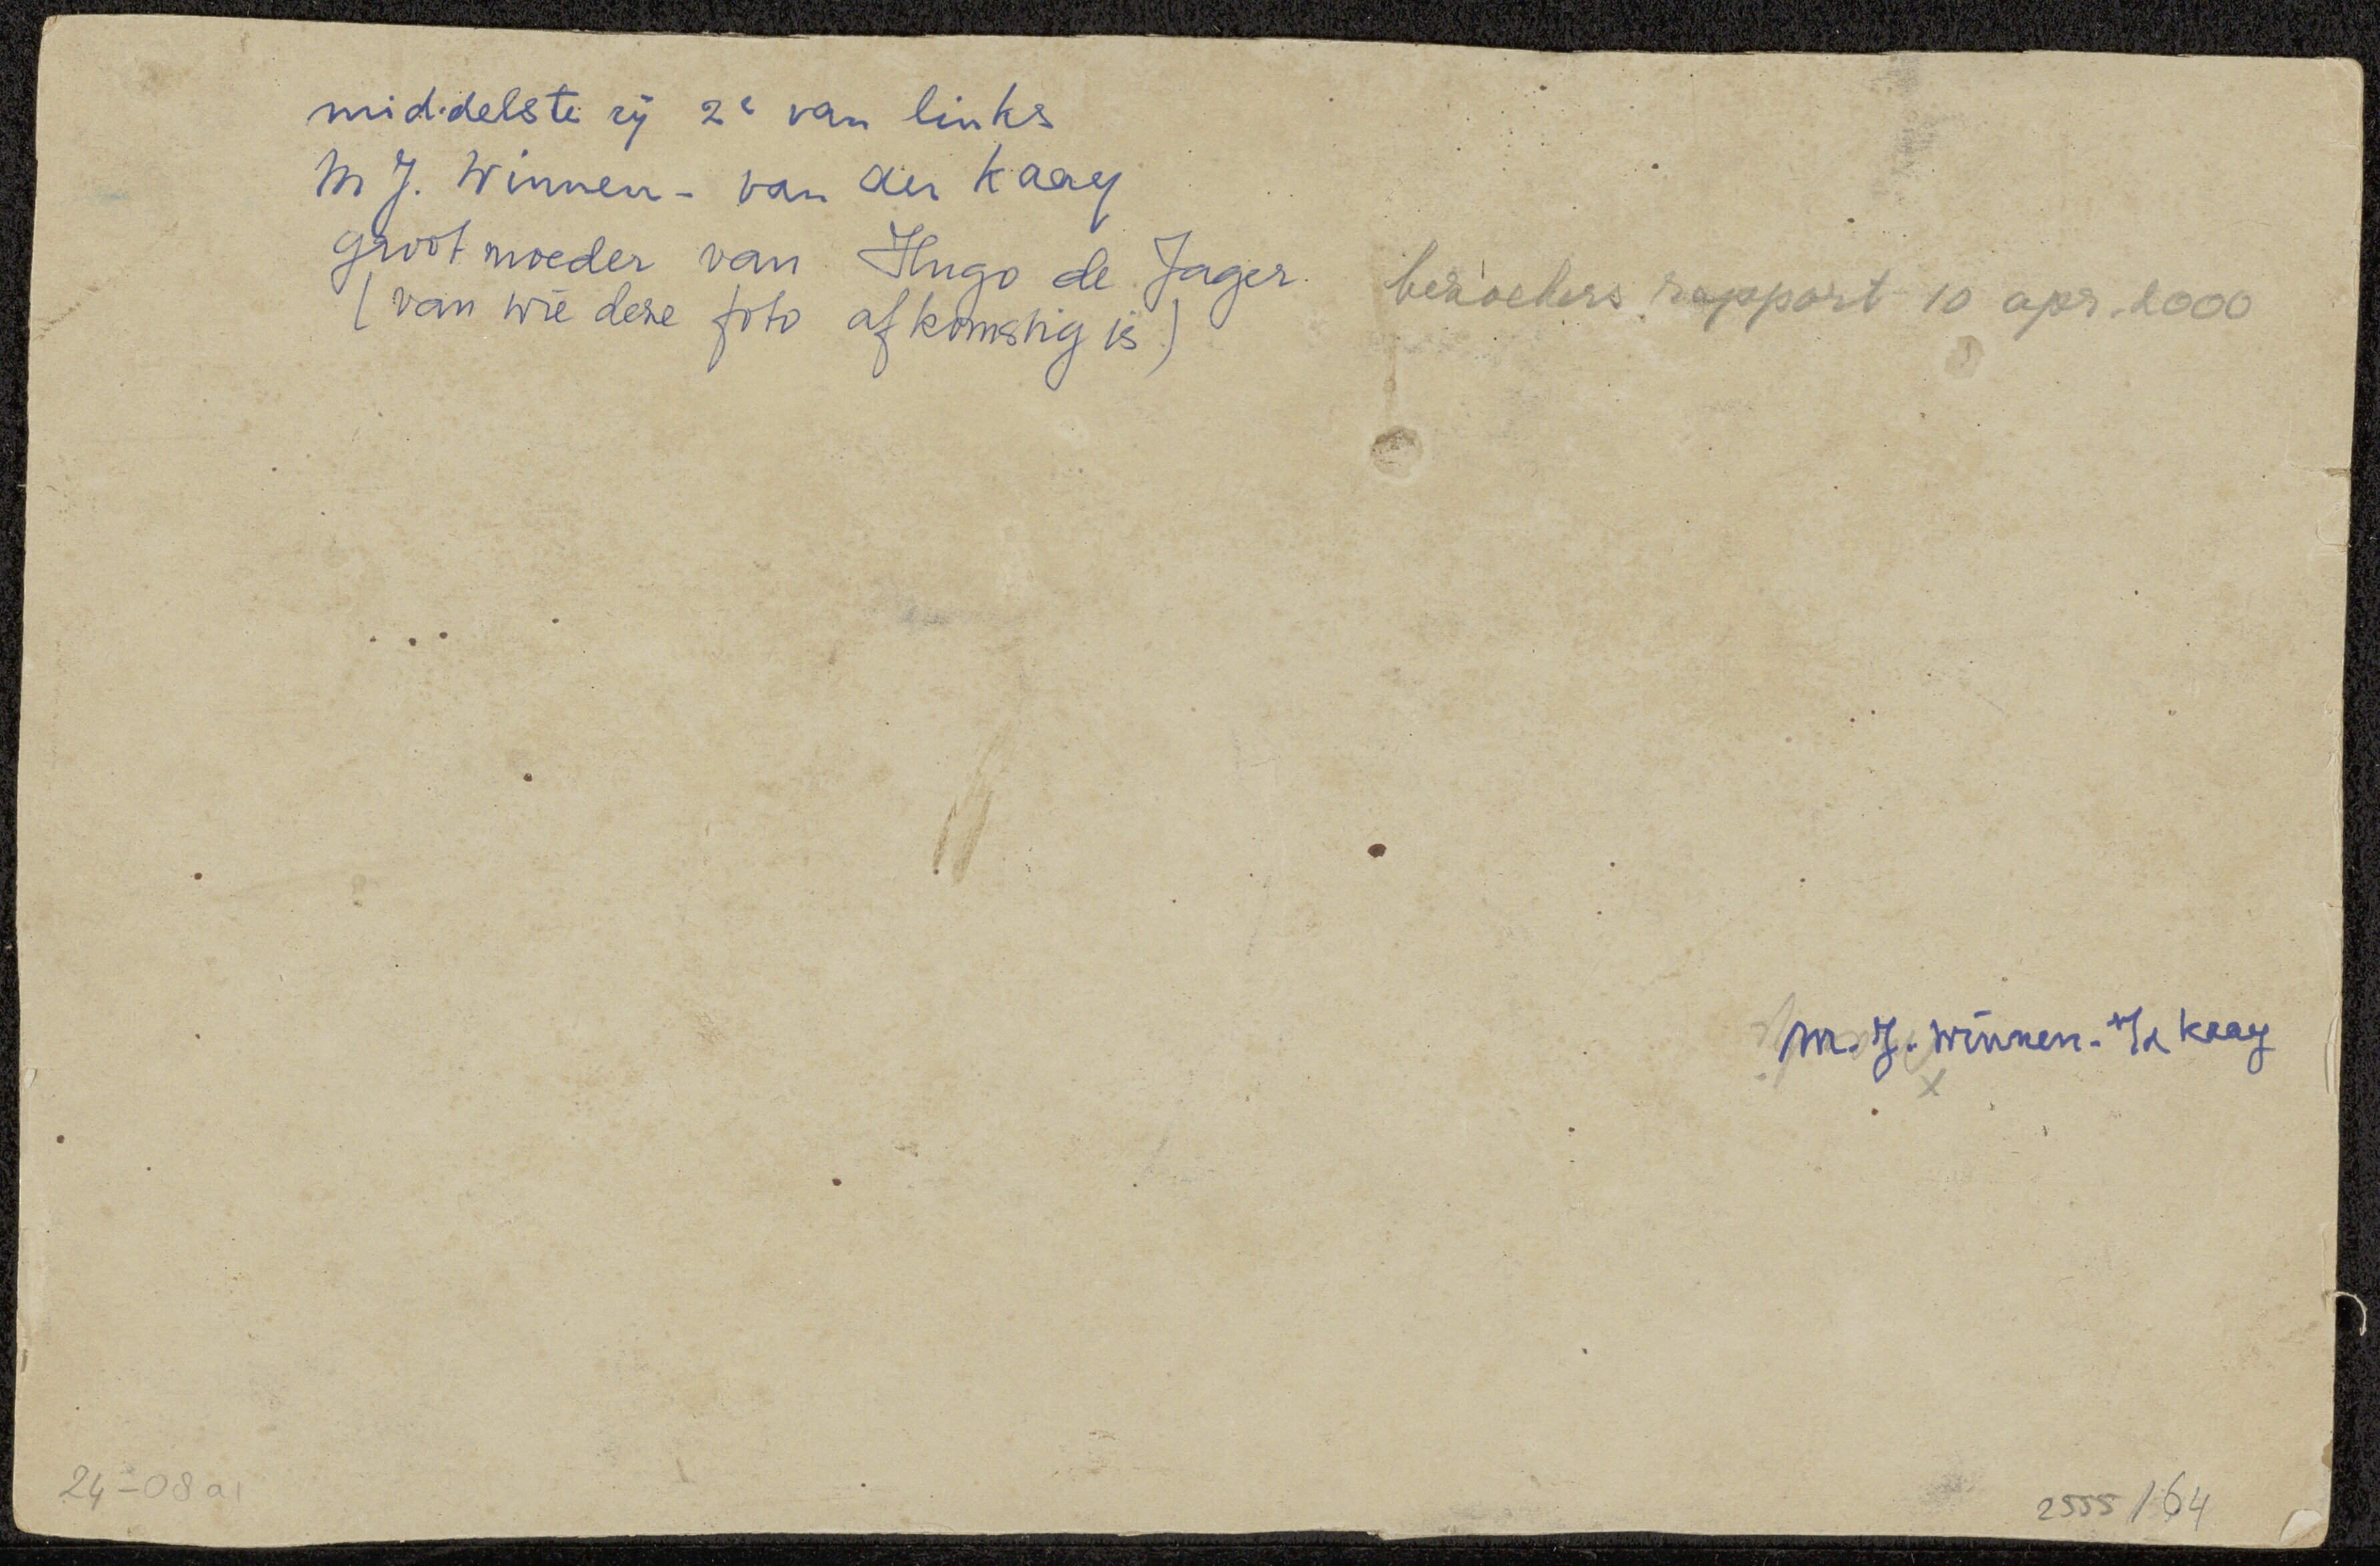 middelste rij 2e van links
M J. Winnen - van der Kaay
grootmoeder van Hugo de Jager
(van wie deze foto afkomstig is)
bezoekers rapport 10 apr. 2000
M. J. Winnen - v/d Kaay
x
24-08a1
2555/64